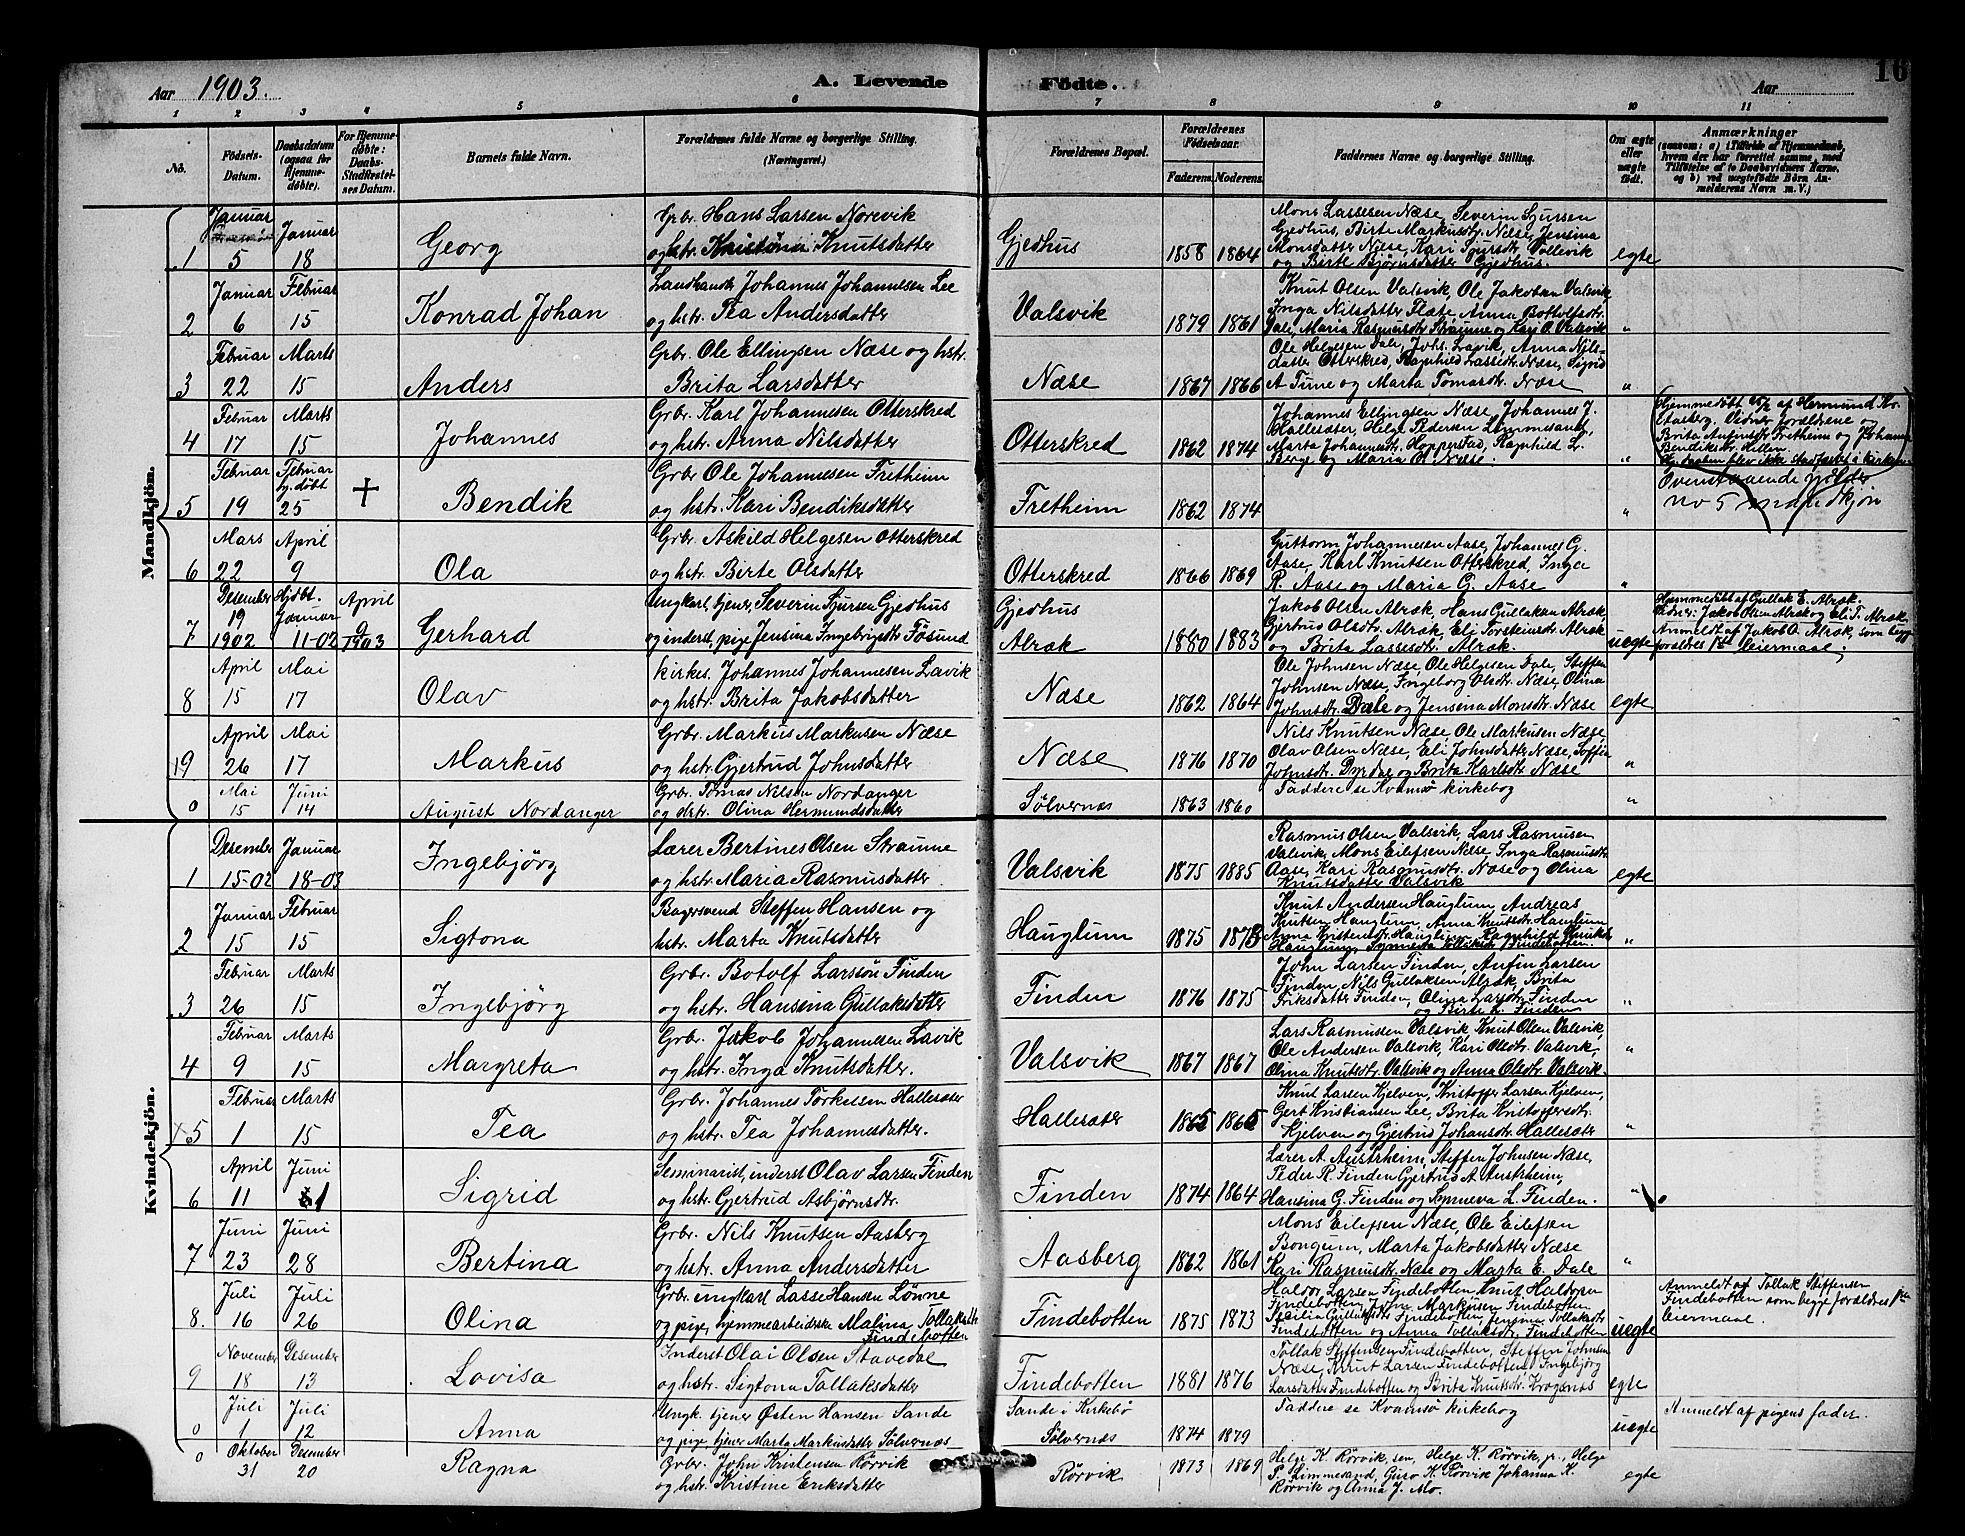 Aar 1903.
A. Levende Födte.
Aar
16
1 2 3 4 5 6 7 8 9 10 11
No.
Födsels-Datum.
Daabsdatum (ogsaa for Hjemmedøbte).
For Hjemmedøbte: Daabs-Stadfæstelsens Datum.
Barnets fulde Navn.
Forældrenes fulde Navne og borgerlige Stilling. (Næringsvei.)
Forældrenes Bopæl.
Forældrenes Födselsaar.
Faderens. Moderens.
Faddernes Navne og borgerlige Stilling.
Om ægte eller uægte födt.
Anmærkninger
(saasom: a) i Tilfælde af Hjemmedaab, hvem der har forrettet samme, med Tilföielse af to Daabsvidners Navne, og b) ved uægtefödte Börn Anmelderens Navn m. V.)
Mandkjön.
1 Januar 5 Januar 18 Georg
Grbr. Hans Larsen Norevik
og hstr. Kristøna Knutsdatter
Gjedhus 1858 1864
Mons Lassesen Næse, Severin Sjursen
Gjedhus, Birte Markusdtr. Næse, Jensina
Monsdatter Næse, Kari Sjursdtr. Tollevik
og Birte Bjørnsdatter Gjedhus.
egte
2 Januar 6 Februar 15 Konrad Johan
Landhandlr. Johannes Johannesen Lee
og hstr. Tea Andersdatter
Valsvik 1879 1861
Knut Olsen Valsvik, Ole Jakobsen Valsvik,
Inga Nilsdatter Flæte, Anna Bottolfsdtr.
Dale, Maria Rasmusdtr. Straume og Kari O. Valsvik
"
3 Februar 22 Marts 15 Anders
Grbr. Ole Ellingsen Næse og hstr.
Brita Larsdatter
Næse 1867 1866
Ole Helgesen Dale, Johs. Lavik, Anna Nils-
datter Otterskred, Ragnhild Lassedtr. Næse, Sigrid
A Ture og Marta Tomasdtr. Næse
"
4 Februar 17 Marts 15 Johannes
Grbr. Karl Johannesen Otterskred
og hstr. Anna Nilsdatter
Otterskred 1862 1874
Johannes Ellingsen Næse, Johannes J.
Hallesæter, Helge Pedersen Limmesand,
Marta Johannesdtr. Hopperstad, Ragnhild L.
Berge og Maria O. Næse.
"
(Hjemmedöbt 25/2 af Hermund Kr.
Aasberg, Vidner forældrene og
Brita Anfinsdtr. Fretheim og Johanne
Bendiksdtr. Hillen.
Hj. daaben blev ikke stadfæstet i kirken.)
5 Februar 19 Februar hj.döbt 25 † Bendik
Grbr Ole Johannesen Fretheim
og hstr. Kari Bendiksdatter
Fretheim 1862 1874
"
Ovenstaaende gjelder
no 5 mandkjön
6 Mars 22 April 9 Ola
Grbr. Askild Helgesen Otterskred
og hstr. Birte Olsdatter
Otterskred 1866 1869
Guttorm Johannesen Aase, Johannes G.
Aase, Karl Knutsen Otterskred, Inga
R. Aase og Maria G. Aase
"
7 Desember 19 1902 Hjdöbt. Januar 11-02 April 9 1903 Gerhard
Ungkarl, tjener, Severin Sjursen Gjedhus
og inderst, pige Jensina Ingebrigtsdtr. Fösund
Gjedhus
Alræk 1880 1883
Jakob Olsen Alræk, Hans Gullaksen Alræk,
Gjertrud Olsdtr. Alræk, Eli Torsteinsdtr. Alræk
og Brita Lassesdtr. Alræk.
uegte
Hjemmedöbt af Gullak E. Alræk.
Vidner: Jakob Olsen Alræk og Eli T. Alræk
Anmeldt af Jakob O. Alræk, som begge
forældres 1ste leiermaal.
8 April 15 Mai 17 Olav
Kirkes. Johannes Johannesen Lavik
og hstr. Brita Jakobsdatter
Næse 1862 1864
Ole Johnsen Næse, Ole Helgesen Dale, Steffen
Johnsen Næse, Ingeborg Olsdtr. Næse, Olina
Johnsdtr. Dale og Jensina Monsdtr. Næse
egte
19 April 26 Mai 17 Markus
Grbr. Markus Markusen Næse
og hstr. Gjertrud Johnsdatter
Næse 1876 1870
Nils Knutsen Næse, Ole Markusen Næse
Olav Olsen Næse, Eli Johnsdatter Næse, Soffia
Johnsdtr. Dyrdar og Brita Karlsdtr. Næse
"
0 Mai 15 Juni 14 August Nordanger
Grbr. Tomas Nilsen Nordanger
og hstr. Olina Hermundsdatter
Sølvernæs 1863 1860
Faddere se Kvamsö kirkebog
"
Kvindekjön.
1 Desember 15-02 Januar 18-03 Ingebjörg
Lærer Bertines Olsen Straume
og hstr. Maria Rasmusdatter
Valsvik 1875 1885
Rasmus Olsen Valsvik, Lars Rasmusen
Valsvik, Mons Eilefsen Næse, Inga Rasmusdtr.
Aase, Kari Rasmusdtr. Næse og Olina
Knutsdatter Valsvik
egte
2 Januar 15 Februar 15 Sigtona
Bagersvend Steffen Hansen og
hstr. Marta Knutsdatter
Hauglum 1875 1873
Knut Andersen Hauglum, Andreas
Knutsen Hauglum, Anna Knutsdtr. Hauglum
Anna Kristensdtr. Hauglum, Ragnhild Knutsdtr.
Hauglum, Synneva Findebotten.
"
3 Februar 26 Marts 15 Ingebjörg
Grbr. Botolf Larssön Finden
og hstr. Hansina Gullaksdatter
Finden 1876 1875
John Larsen Finden, Anfin Larsen
Finden, Nils Gullaksen Alræk, Brita
Eriksdatter Finden, Olina Larsdtr. Finden
og Birte L. Finden
"
4 Februar 9 Marts 15 Margreta
Grbr. Jakob Johannesen Lavik
og hstr. Inga Knutsdatter.
Valsvik 1867 1867
Lars Rasmussen Valsvik, Knut Olsen Valsvik,
Ole Andersen Valsvik, Kari Olsdtr. Valsvik,
Olina Knutsdtr. Valsvik og Anna Olsdtr. Valsvik.
"
×5 Februar 1 Marts 15 Tea
Grbr. Johannes Torkelsen Hallesæter
og hstr. Tea Johannesdatter.
Hallesæter 1865 1865
Knut Larsen Kjelven, Kristoffer Larsen Kjelven,
Gert Kristiansen Lee, Brita Kristoffersdtr.
Kjelven og Gjertrud Johansdtr. Hallesæter
"
6 April 11 Juni 1 Sigrid
Seminarist, inderst Olav Larsen Finden
og hstr. Gjertrud Asbjörnsdtr.
Finden 1874 1864
Lærer A. Austrheim, Steffen Johnsen Næse,
Peder R. Finden Gjertrud A Austrheim,
Hansina G. Finden og Synneva L. Finden.
"
7 Juni 23 Juni 28 Bertina
Grbr. Nils Knutsen Aasberg
og hstr. Anna Andersdatter
Aasberg 1862 1861
Mons Eilefsen Næse, Ole Eilefsen
Bongum, Marta Jakobsdatter Næse
Kari Rasmusdtr. Næse og Marta E. Dale
"
8. Juli 16 Juli 26 Olina
Grbr. ungkarl Lasse Hansen Lönne
og pige, hjemmearbeidske Malina Tollaksdtr.
Findebotten
Findebotten 1875 1873
Haldor Larsen Findebotten, Knut Haldorsen
Findebotten, Jens Markusen Findebotten
Sesilia Gullaksdtr. Findebotten, Jensina Tollaksdtr.
Findebotten og Anna Tollaksdtr. Findebotten
uegte
Anmeldt af Tollak Steffensen
Findebotten som begge forældres 1ste
leiermaal.
9 November 18 Desember 13 Lovisa
Inderst Olai Olsen Stavedal
og hstr. Sigtona Tollaksdatter
Findebotten 1881 1876
Tollak Steffensen Findebotten, Steffen Johnsen
Næse, Knut Larsen Findebotten, Ingebjörg
Larsdatter Findebotten og Brita Knutsdtr. Krogenæs
egte
0 Juli 1 Juli 12 Anna
Ungk. tjener Østen Hansen Sande
og pige, tjener Marta Markusdatter Sølvernæs
Sande i Kirkebö
Sølvernæs 1874 1879
Faddere se Kvamsö kirkebog
uegte
Anmeldt af pigens fader.
0 Oktober 31 Desember 20 Ragna
Grbr. John Kristensen Rörvik
og hstr. Kristine Eriksdatter
Rørvik 1873 1869
Helge K. Rørvik sen, Helge K. Rørvik, jr., Helge
P. Limmesand, Guro K. Rørvik Johanna K.
Rørvik og Anna J. Mo.
egte